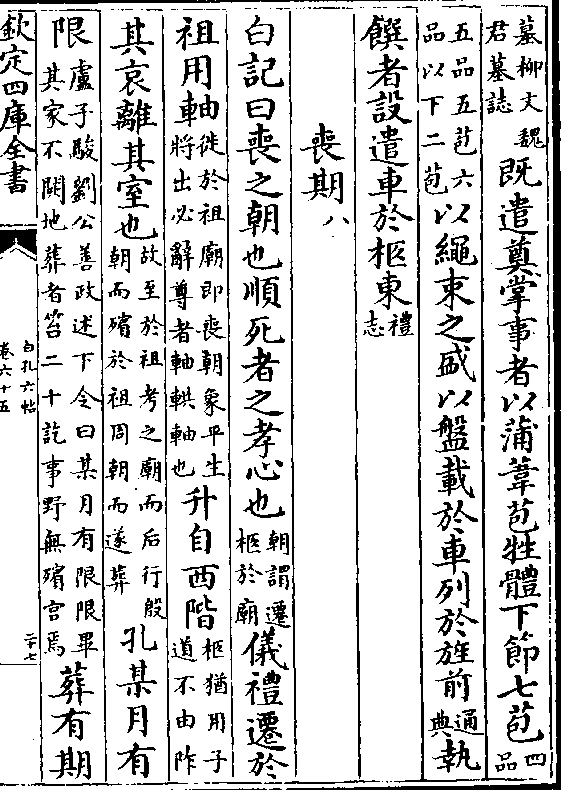 墓柳文魏
君墓誌
既遣奠掌事者以蒲葦苞牲體下節七苞四品
五品五苞六
品以下二苞
以繩束之盛以盤載於車列於旌前通典執
饌者設遣車於柩東禮志
喪期八
白記曰喪之朝也順死者之孝心也朝謂遷柩於廟儀禮遷於
祖用軸徙於祖廟即喪朝象平生
將出必辭尊者軸輁軸也
升自西階柩猶用子
道不由阼
其哀離其室也故至於祖考之廟而后行殷
朝而殯於祖周朝而遂葬
孔某月有
限盧子駿劉公善政述下令曰某月有限限畢
其家不闢地葬者笞二十訖事野無殯宫焉
葬有期
欽定四庫全書
白孔六帖
卷六十五
二十七